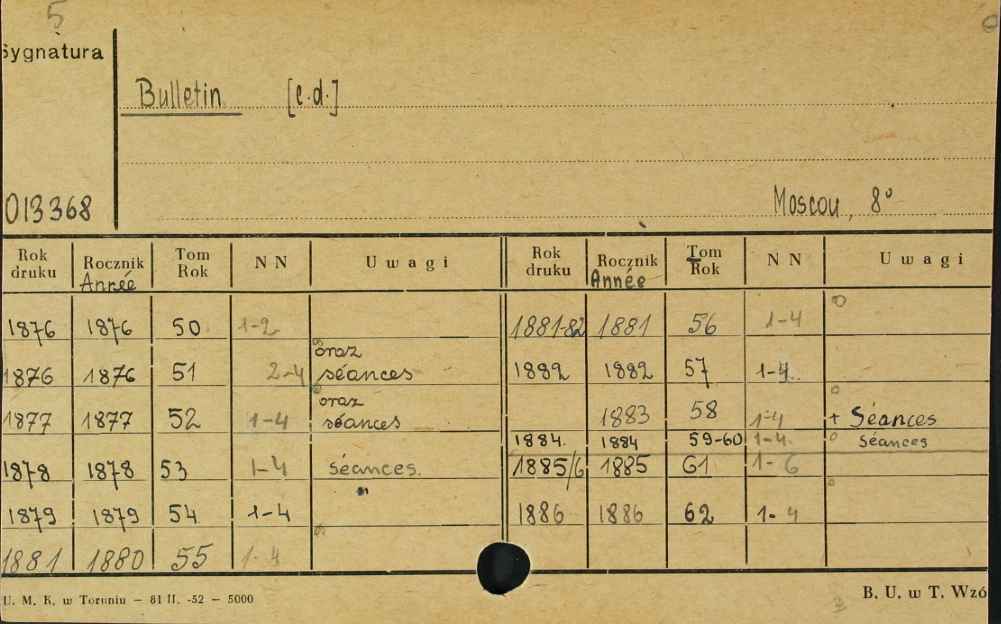 5
Sygnatura
Bulletin [c.d.]
013368
Moscou, 8°
Rok druku Rocznik Année Tom Rok NN Uwagi Rok druku Rocznik Année Tom Rok NN Uwagi
1876 1876 50 1-2 1881-82 1881 56 1-4
1876 1876 51 2-4 oraz séances 1882 1882 57 1-4
1877 1877 52 1-4 oraz séances 1883 58 1-4 + Séances
1884 1884 59-60 1-4 séances
1878 1878 53 1-4 séances 1885/6 1885 61 1-6
1879 1879 54 1-4 1886 1886 62 1-4
1881 1880 55 1-4
U. M. K. w Toruniu — 81 II. -52 — 5000
B. U. w T. Wzó